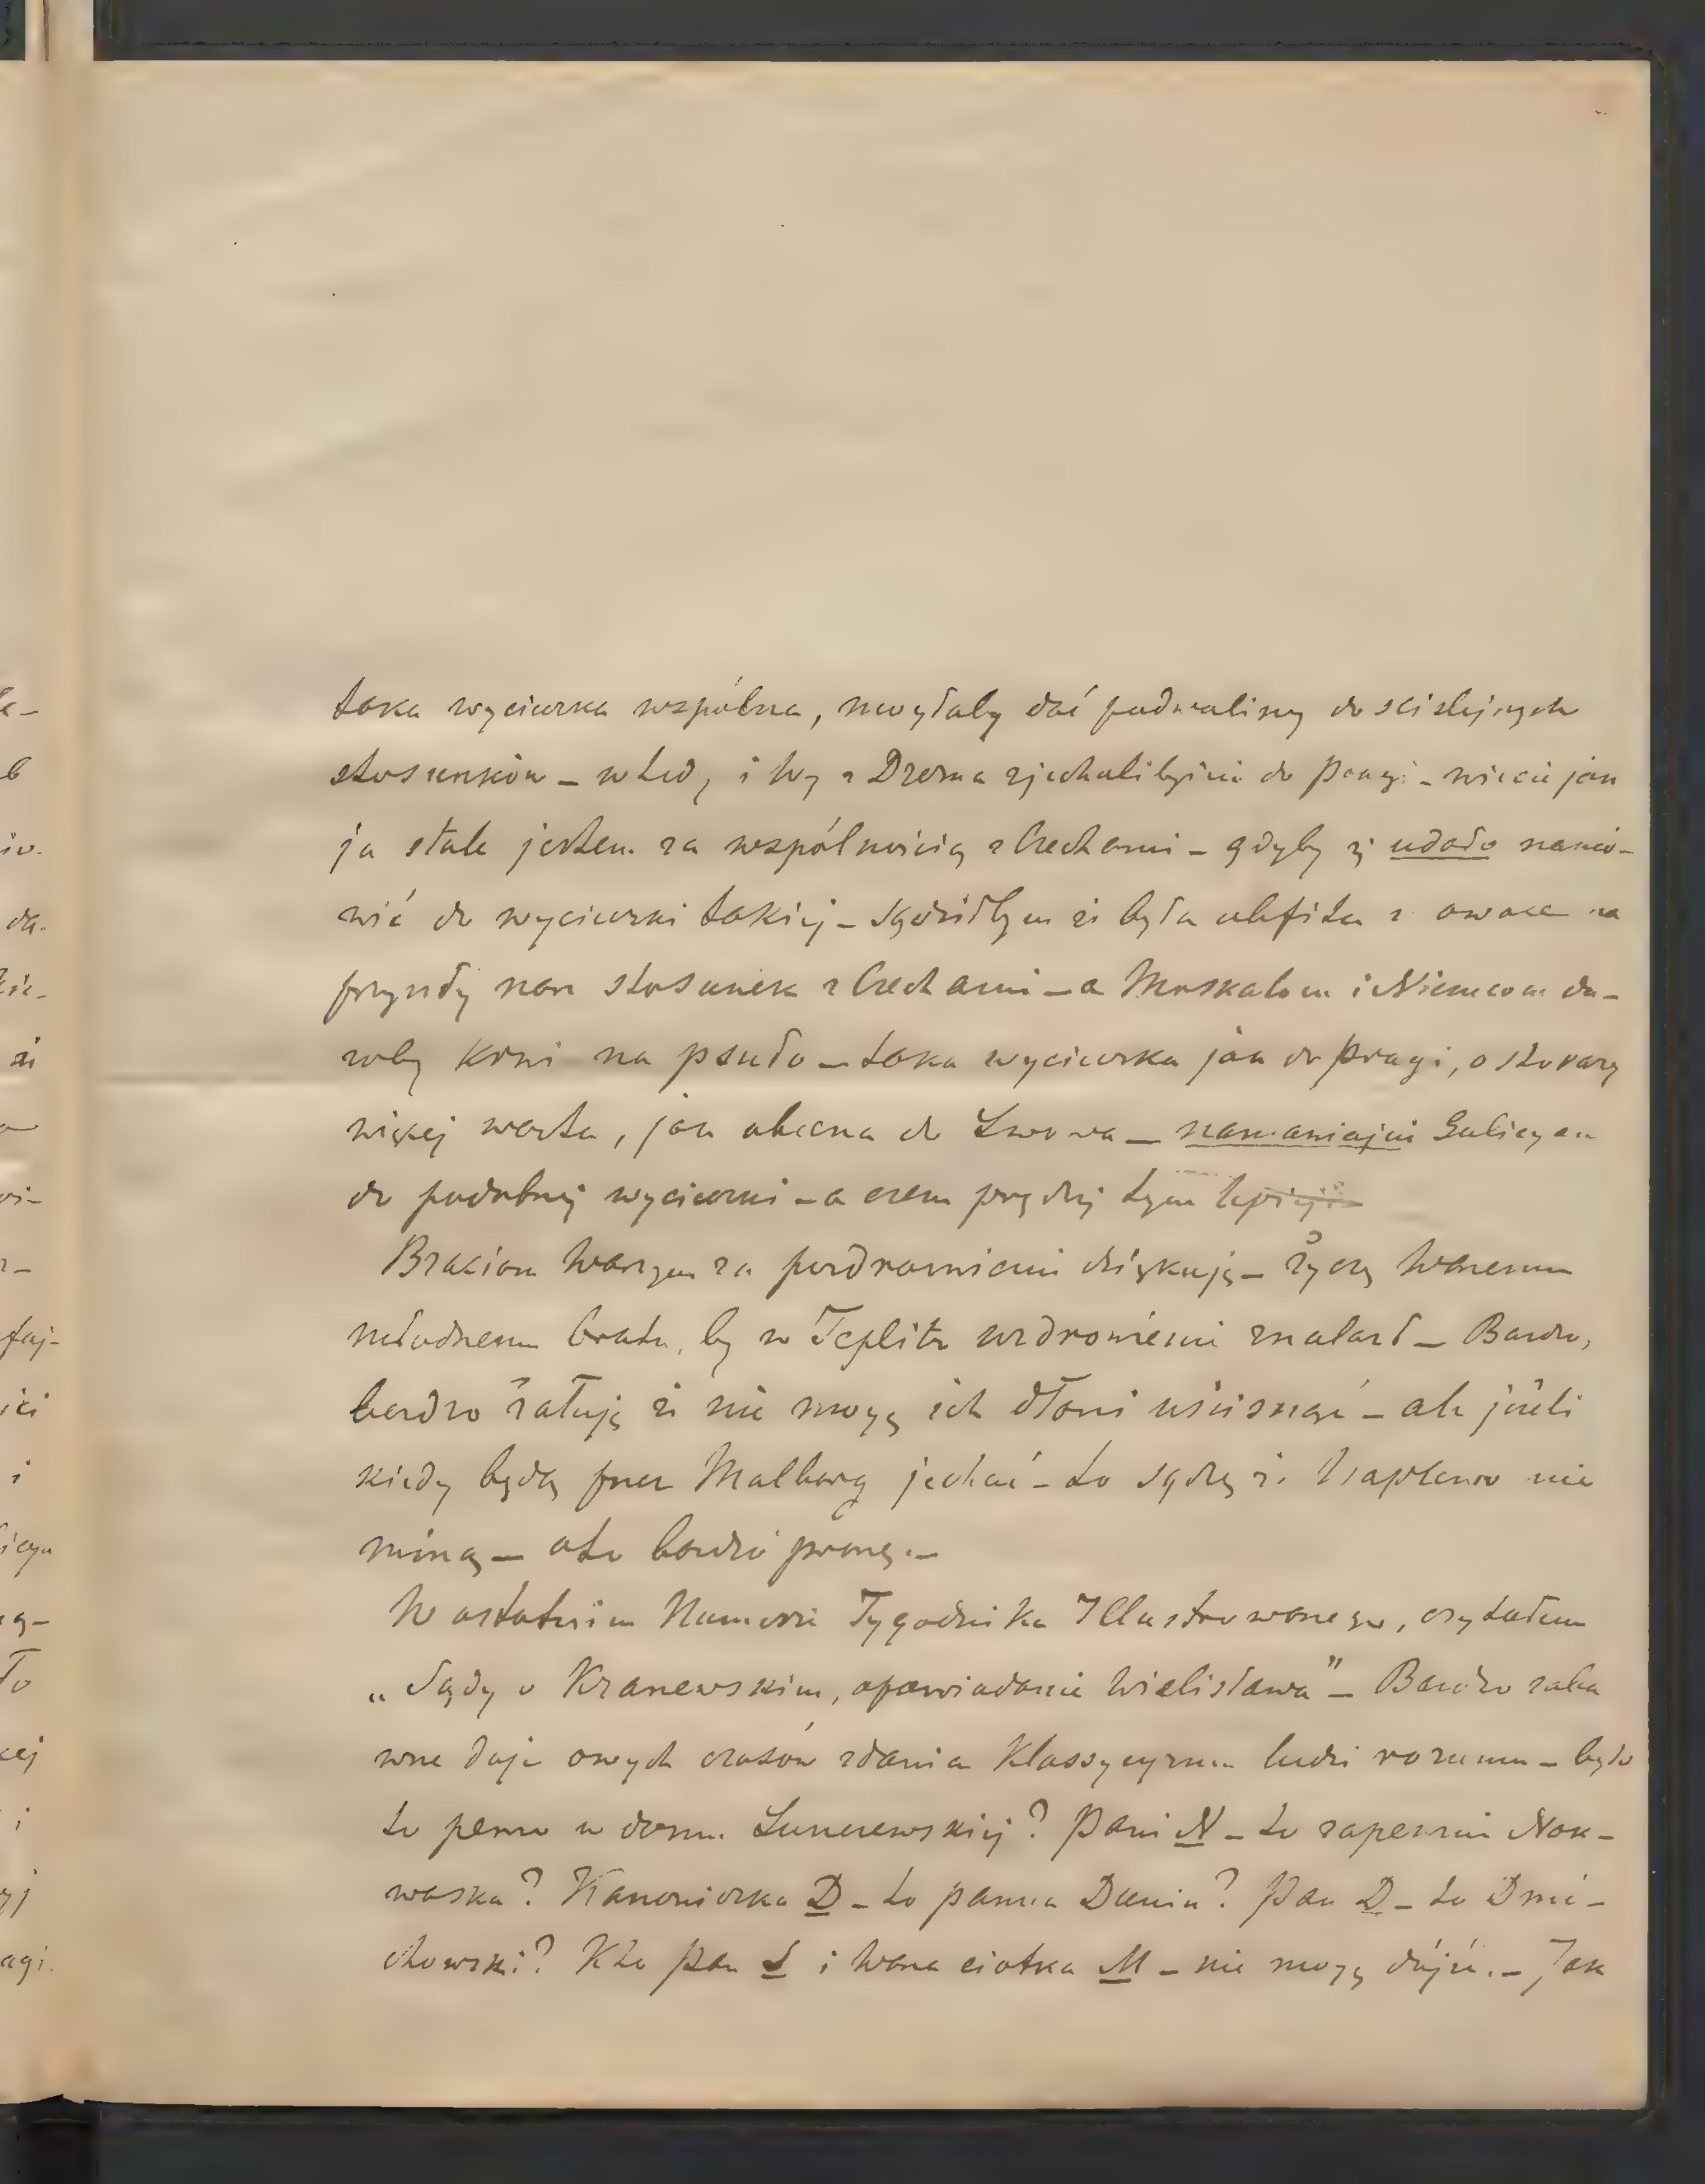 taka wycieczka wspólna, mogłaby dać podwaliny do ściślejszych
stosunków – wtedy i Wy z Drezna zjechalibyście do Pragi – wiecie jak
ja stale jestem za wspólnością z Czechami – gdyby się udało namó-
wić do wycieczki takiej – sądziłbym że była obfita w owoce na
przyszły nasz stosunek z Czechami – a Moskalom i Niemcom da-
taka wycieczka jak do Pragi, o sto razy
więcej warta, jak obecna do Lwowa – namawiajcie Galicyan
do podobnej wycieczki – a czem prędzej tym lepiej –
Braciom Waszym za pozdrowienie dziękuję – życzę Waszemu
młodszemu bratu, by w Teplitz uzdrowienie znalazł – Bardzo,
bardzo żałuję że nie mogę ich dłoni uścisnąć – ale jeżeli
kiedy będą przez Malborg jechać – to sądzę że Waplewo nie
miną – o to bardzo proszę. –
W ostatnim Numerze Tygodnika Illustrowanego, czytałem
„Sądy o Krasewskim, opowiadanie Wielisława” – Bardzo zaba
wne daje owych czasów zdania Klassycyzmu ludzi rozumu – było
to pewno w domu Łuszczewskiej? Pani N – to zapewnie Nak-
waska? Kanoniczka D – to panna Dunin? Pan D – to Dmó-
chowski? Kto Pan L i Wasza ciotka M – nie mogę dójść. – Jak